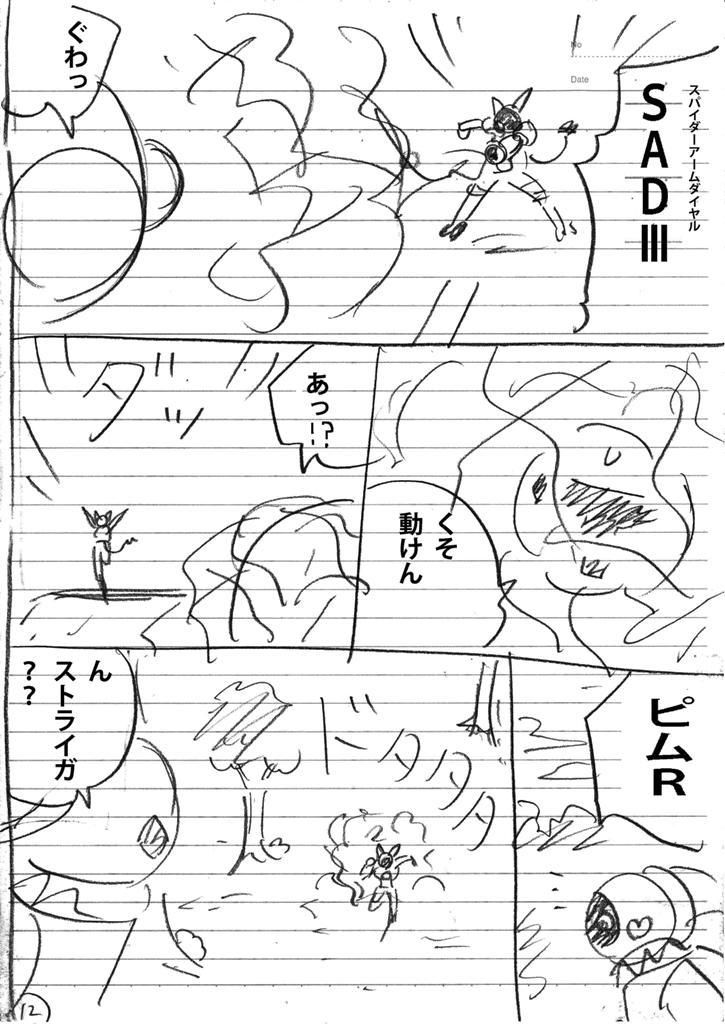 No
Date
スパイダーアームダイヤル
SADⅢ
ぐわっ
くそ
動けん
あっ!?
ダッ
ピムR
ドタタタ
ん
ストライガ
??
12